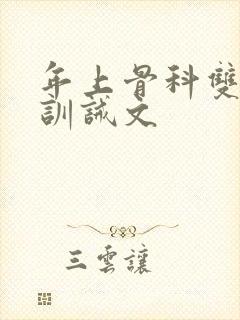 年上骨科雙
訓誡文
三雲讓